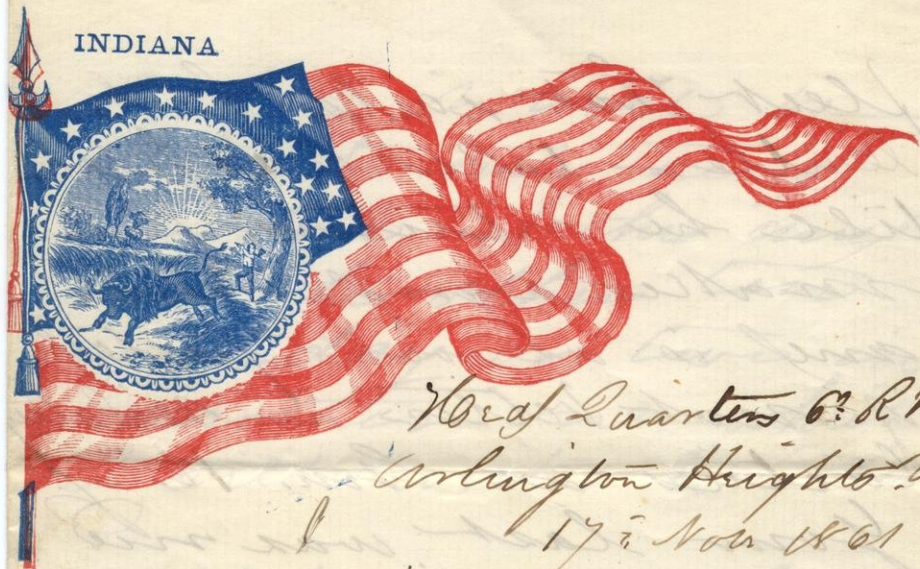 INDIANA
Head Quarters 6th R
Arlington Heights
17th Nov 1861